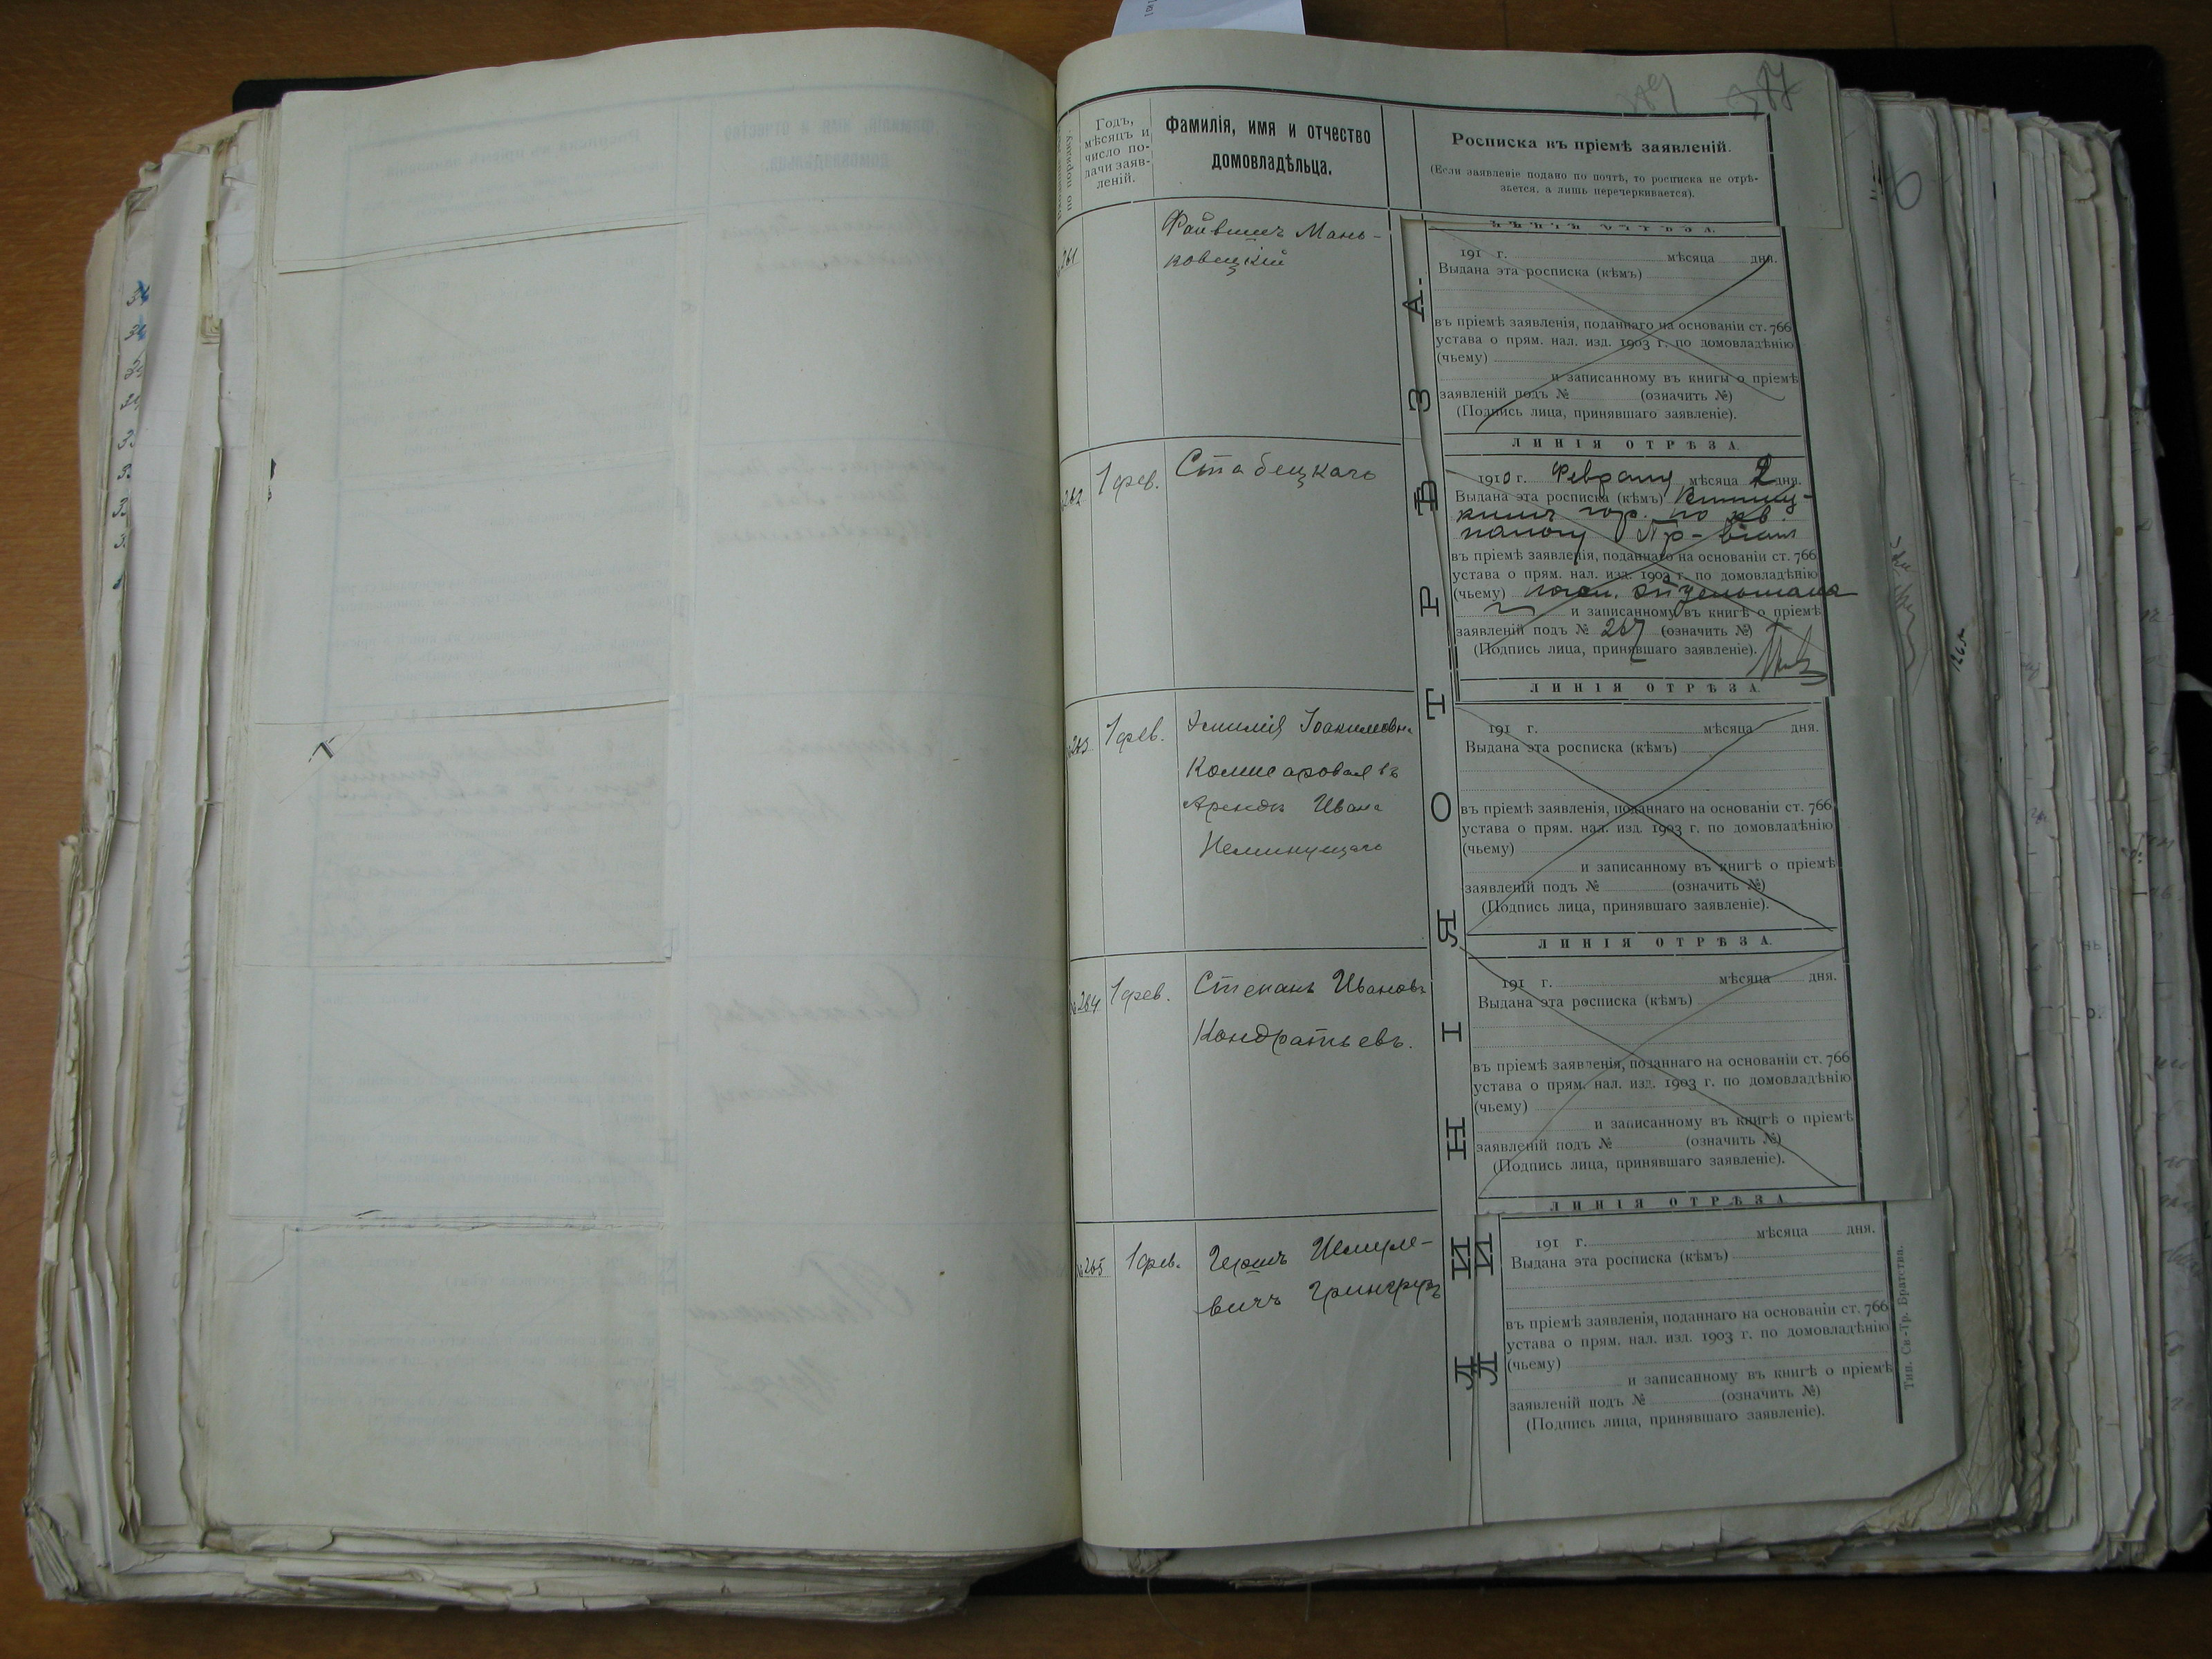 Годъ,
мѣсяцъ и
число по-
дачи заяв-
леній.
Фамилія, имя и отчество
домовладѣльца.
Росписка въ пріемѣ заявленій.
(Если заявленіе подано по почтѣ, то росписка не отрѣ-
зается, а лишь перечеркивается).
по порядку.
261
Файвишъ Мань-
ковецкій
191 г. мѣсяца дня.
Выдана эта росписка (кѣмъ)
въ пріемѣ заявленія, поданнаго на основаніи ст. 766
устава о прям. нал. изд. 1903 г. по домовладѣнію
(чьему)
и записанному въ книгы о пріемѣ
заявленій подъ № (означить №)
(Подпись лица, принявшаго заявленіе).
ЛИНІЯ ОТРѢЗА.
262
1 фев.
Стабецкаго
1910 г. Февраля мѣсяца 2 дня.
Выдана эта росписка (кѣмъ)
гор. по кв.
налогу
въ пріемѣ заявленія, поданнаго на основаніи ст. 766
устава о прям. нал. изд. 1903 г. по домовладѣнію
(чьему)
и записанному въ книгѣ о пріемѣ
заявленій подъ № 267 (означить №)
(Подпись лица, принявшаго заявленіе).
ЛИНІЯ ОТРѢЗА.
263
1 фев.
Эмилія Іоакимовна
Комисаровая въ
Арендѣ Ивана
Неминущаго
191 г. мѣсяца дня.
Выдана эта росписка (кѣмъ)
въ пріемѣ заявленія, поданнаго на основаніи ст. 766
устава о прям. нал. изд. 1903 г. по домовладѣнію
(чьему)
и записанному въ книгѣ о пріемѣ
заявленій подъ № (означить №)
(Подпись лица, принявшаго заявленіе).
ЛИНІЯ ОТРѢЗА.
№ 264
1 фев.
Степанъ Ивановъ
Кондратьевъ.
191 г. мѣсяца дня.
Выдана эта росписка (кѣмъ)
въ пріемѣ заявленія, поданнаго на основаніи ст. 766
устава о прям. нал. изд. 1903 г. по домовладѣнію
(чьему)
и записанному въ книгѣ о пріемѣ
заявленій подъ № (означить №)
(Подпись лица, принявшаго заявленіе).
ЛИНІЯ ОТРѢЗА
№ 265
1 фев.
Гершъ Шмуле-
вичъ Грингрузъ
191 г. мѣсяца дня.
Выдана эта росписка (кѣмъ)
въ пріемѣ заявленія, поданнаго на основаніи ст. 766
устава о прям. нал. изд. 1903 г. по домовладѣнію
(чьему)
и записанному въ книгѣ о пріемѣ
заявленій подъ № (означить №)
(Подпись лица, принявшаго заявленіе).
ЛИНІЯ ОТРѢЗА.
Тип. Св.-Тр. Братства.